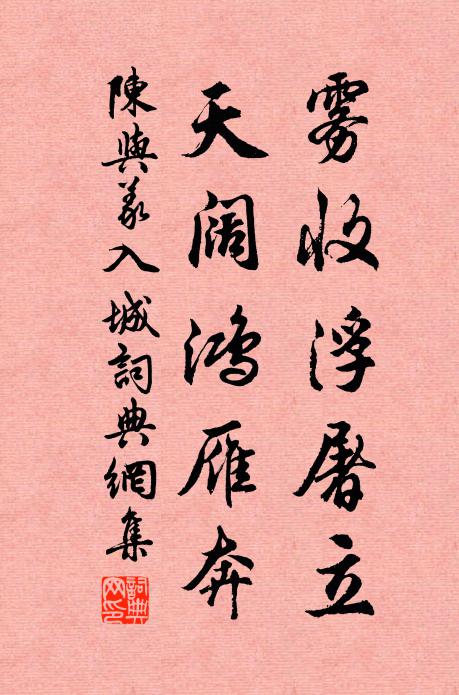 雾收浮屠立
天阔鸿雁奔
陳與義入城詞典網集
詞典网印